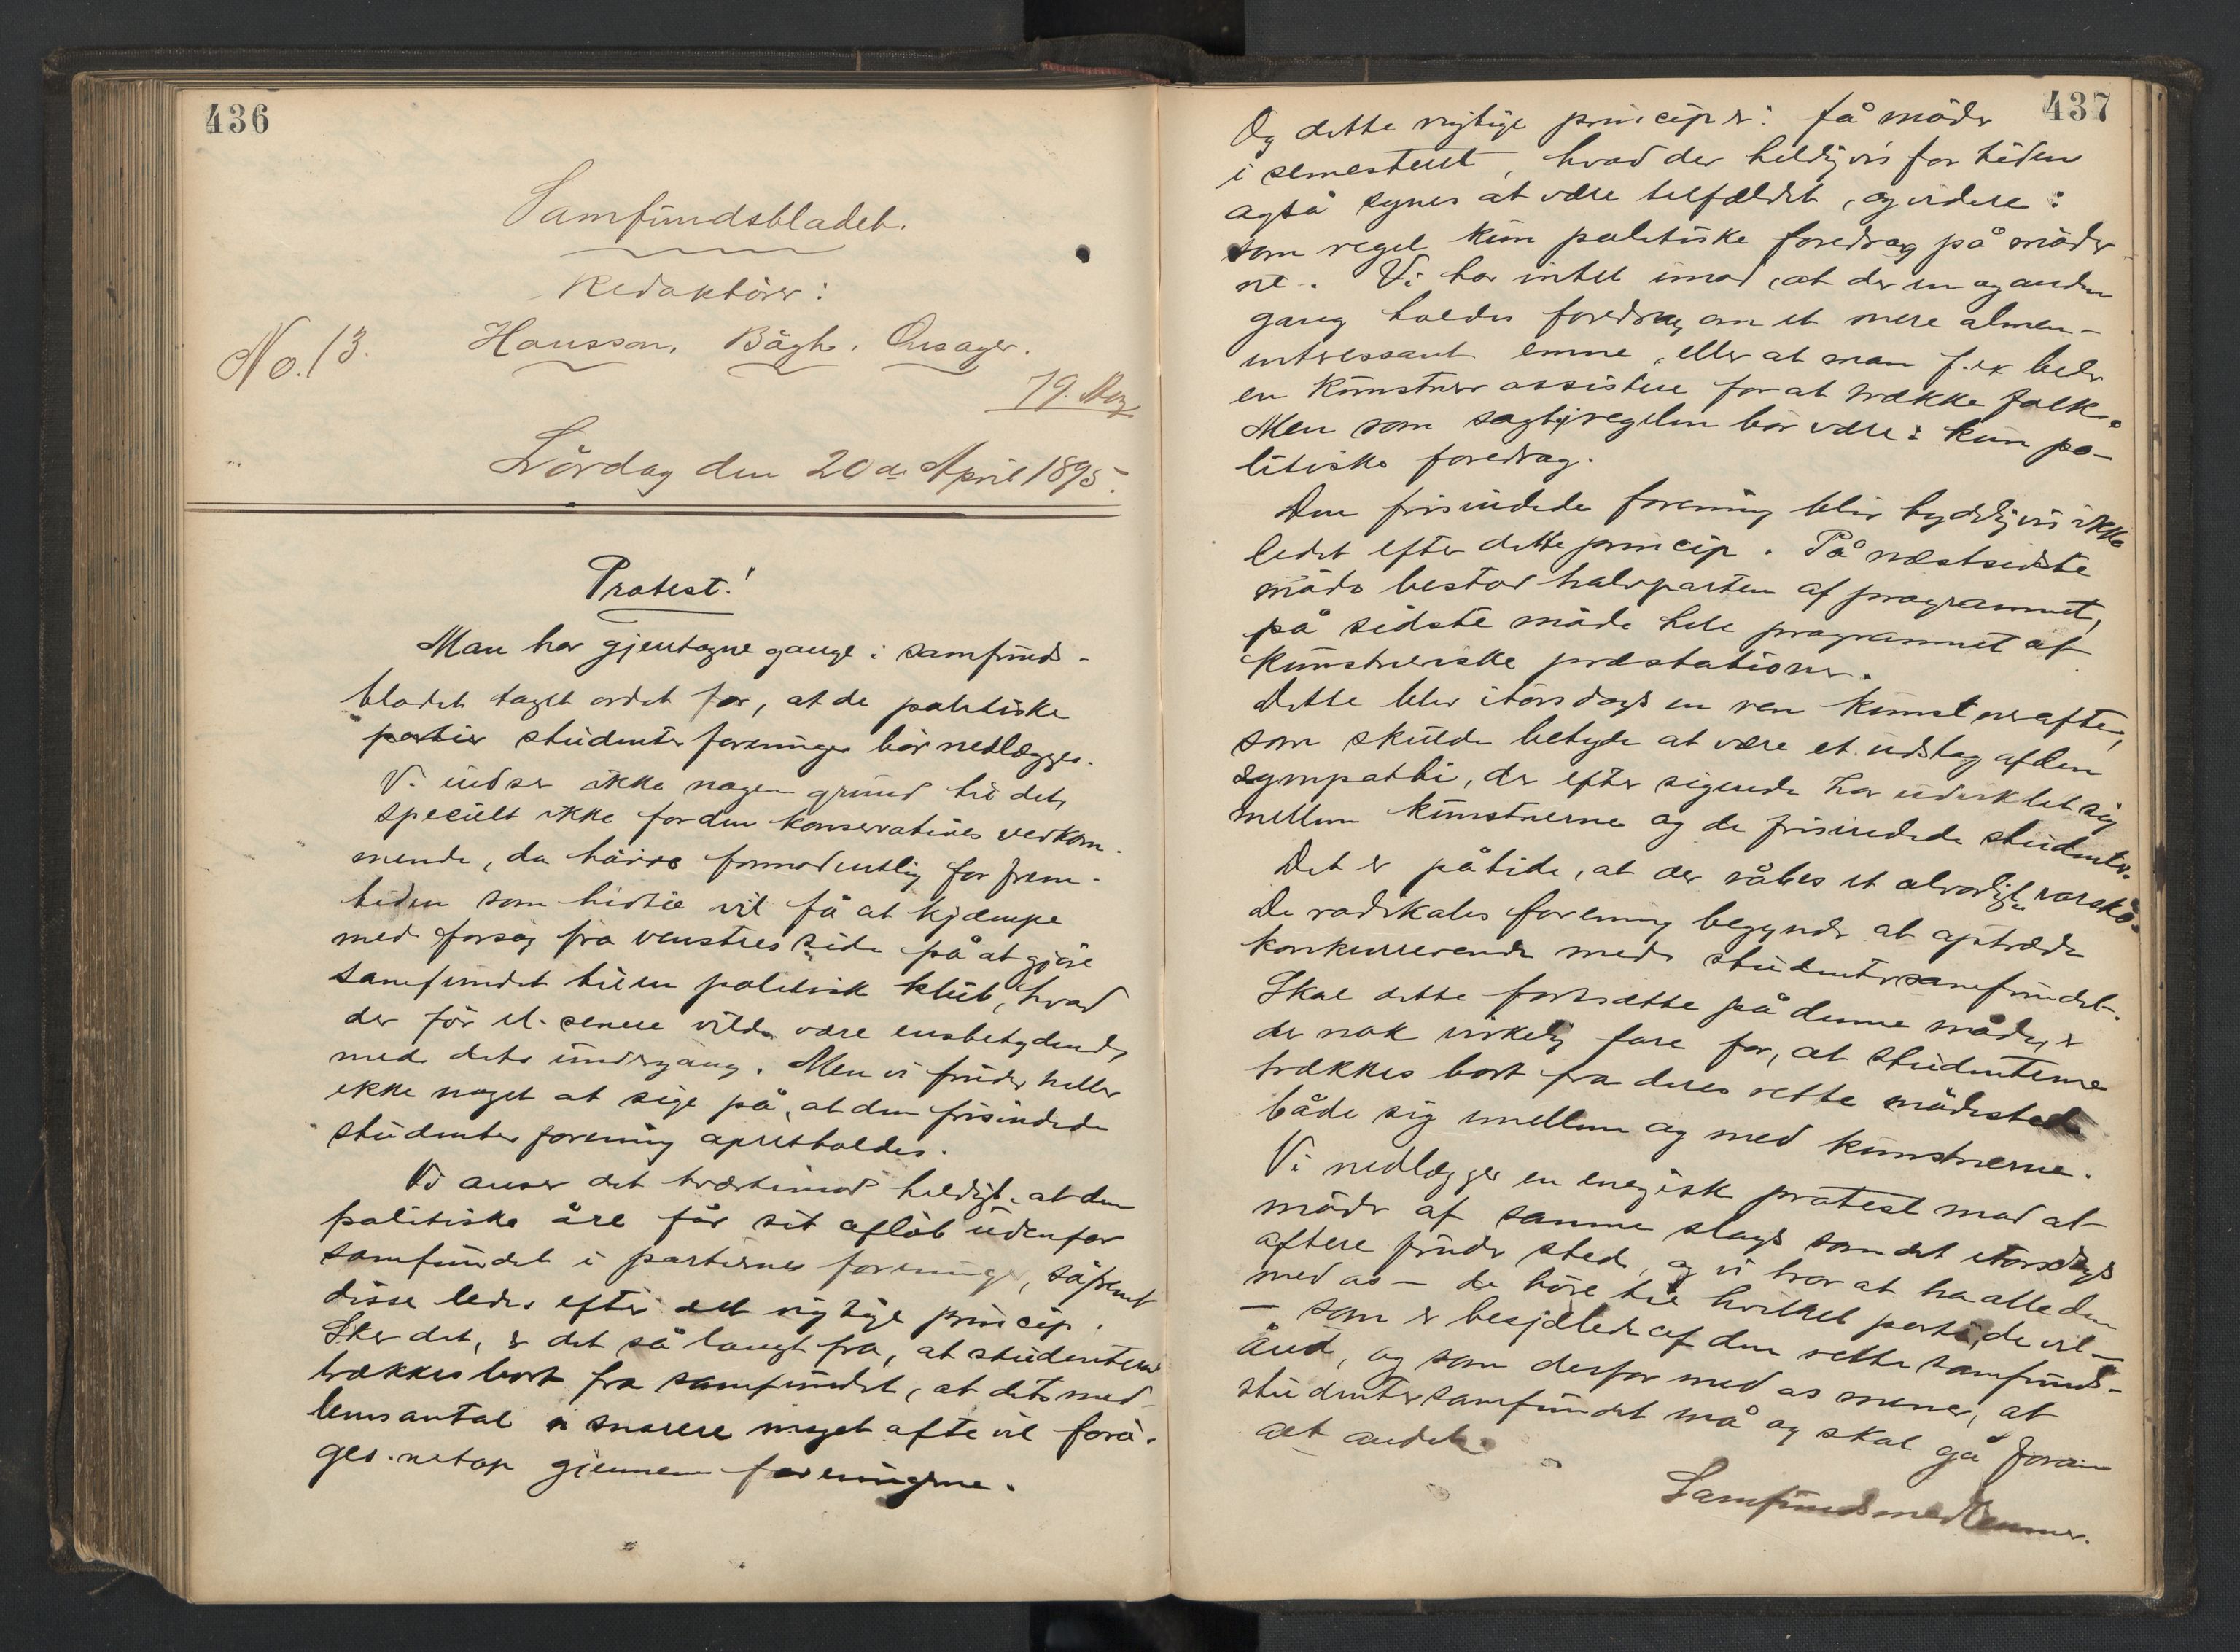 436
Samfundsbladet.
Redaktörer:
No. 13.
Hansson, Bögh, Onsager.
19. Marz
Lördag den 20de April 1895.
Protest!
Man har gjentagne gange i samfunds-
bladet taget ordet for, at de politiske
partier studenterforeninger bör nedlægges.
Vi indser ikke nogen grund til det,
specielt ikke for den konservatives vedkom-
mende, da höire formodentlig for frem-
tiden som hidtil vil få at kjæmpe
med forsög fra venstres side på at gjöre
samfundet til en politisk klub, hvad
der för el. senere vilde være ensbetydende
med dets undergang. Men vi finder heller
ikke noget at sige på, at den frisindede
studenterforening opretholdes.
Vi anser det tværtimod heldigt, at den
politiske åre får sit aflöb udenfor
samfundet i partiernes foreninger, såfremt
disse ledes efter det rigtige princip.
Sker det, er det så langt fra, at studenterne
trækkes bort fra samfundet, at dets med-
lemsantal snarere meget ofte vil forö-
ges netop gjennem foreningerne.
437
Og dette rigtige princip er: få möder
i semesteret, hvad der heldigvis for tiden
også synes at være tilfældet, og videre:
som regel kun politiske foredrag på möder-
ne. Vi har intet imod, at der en og anden
gang holdes foredrag om et mere almen-
interessant emne, eller at man f. ex. beder
en kunstner assistere for at trække folk.
Men som sagt, regelen bör være: kun po-
litiske foredrag.
Den frisindede forening blir tydeligvis ikke
ledet efter dette princip. På næstsidste
möde bestod halvparten af programmet,
på sidste möde hele programmet af
kunstneriske præstationer.
Dette blev itorsdags en ren kunstneraften,
som skulde betyde at være et udslag af den
sympathi, der efter sigende har udviklet sig
mellem kunstnerne og de frisindede studenter.
Det er påtide, at der råbes et alvorligt varskö.
De radikales forening begynder at optræde
konkurrerende med studentersamfundet.
Skal dette fortsætte på denne måde, er
der nok virkelig fare for, at studenterne
trækkes bort fra deres rette mödested
både sig imellem og med kunstnerne.
Vi nedlægger en energisk protest mod at
möder af samme slags som det itorsdags
oftere finder sted, og vi tror at ha alle dem
med os – de höre til hvilket parti, de vil –
– som er besjælede af den rette samfunds-
ånd, og som derfor med os mener, at
studentersamfundet må og skal gå foran
alt andet.
Samfundsmedlemmer.